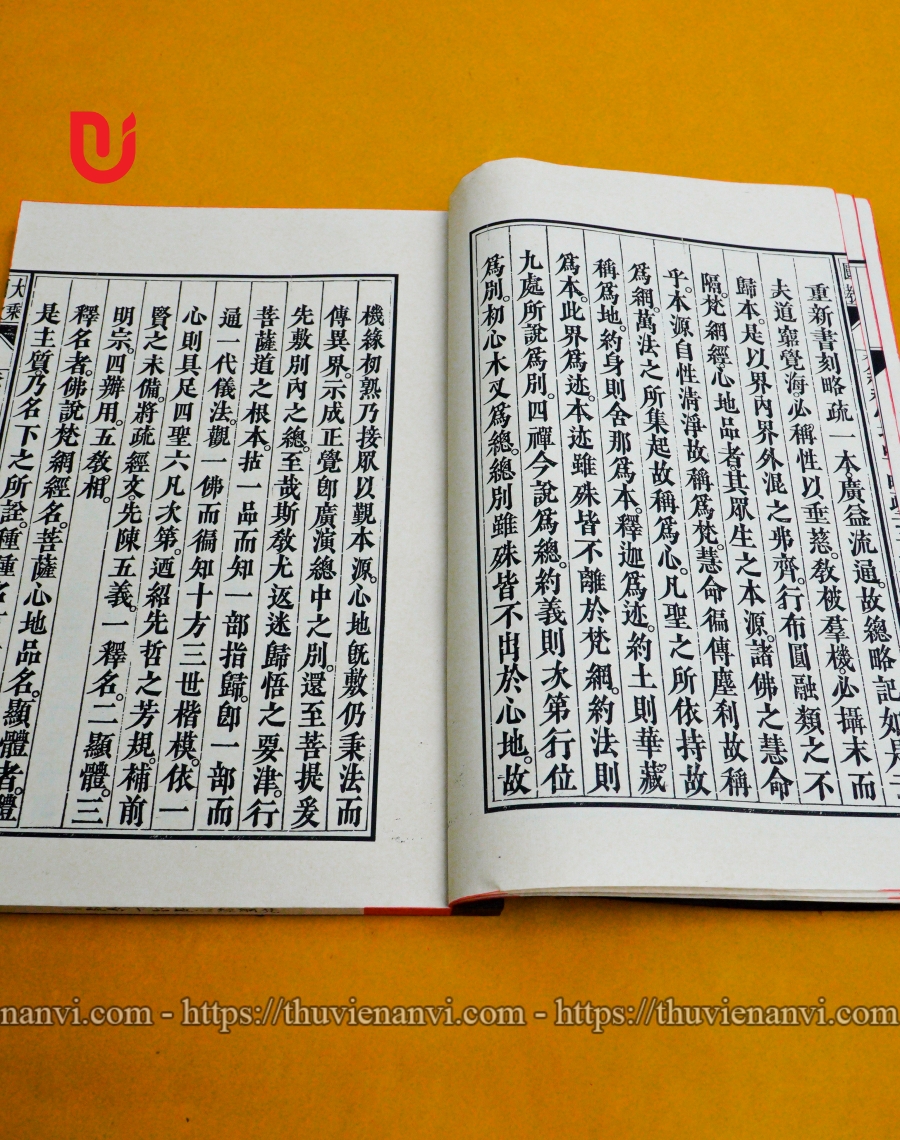 重新書刻略疏一本廣益流通。故總略記如是
夫道窮覺海。必稱性以垂慈。敎被羣機。必攝末而
歸本。是以界內界外混之弗齊。行布圓融類之不
隔。梵網經。心地品者。其眾生之本源。諸佛之慧命
乎。本源自性清淨故稱爲梵。慧命徧傳塵刹故稱
爲網。萬法之所集起故稱爲心。凡聖之所依持故
稱爲地。約身則舍那爲本。釋迦爲迹。約土則華藏
爲本。此界爲迹。本迹雖殊皆不離於梵網。約法則
九處所說爲別。四禪今說爲總。約義則次第行位
爲別。初心木叉爲總。總別雖殊皆不出於心地。故
機緣初熟乃接眾以覲本源。心地旣敷仍秉法而
傳異界。示成正覺卽廣演總中之別。還至菩提爰
先敷別內之總。至哉斯敎尤返迷歸悟之要津。行
菩薩道之根本。掿一品而知一部指歸。卽一部而
通一代儀法。觀一佛而徧知十方三世楷模。依一
心則具足四聖六凡次第。迺紹先哲之芳規。補前
賢之未備。將疏經文。先陳五義。一釋名。二顯體。三
明宗。四辨用。五敎相。
釋名者。佛說梵網經名。菩薩心地品名。顯體者。體
是主質乃名下之所詮。種種名
大乘
nanvi.com - https://thuvienanvi.com - https://thuvienanvi.com